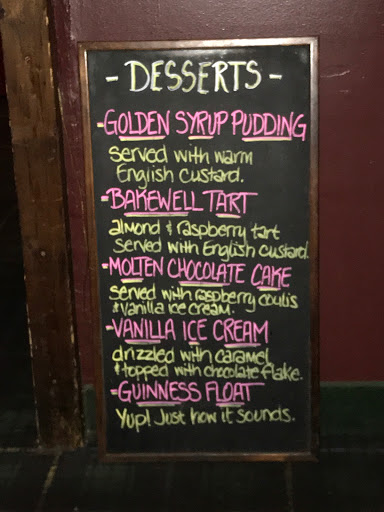 - DESSERTS -
- GOLDEN SYRUP PUDDING
served with warm
English custard.
- BAKEWELL TART
almond & raspberry tart
served with English custard.
- MOLTEN CHOCOLATE CAKE
served with raspberry coulis
& vanilla ice cream.
- VANILLA ICE CREAM
drizzled with caramel
& topped with chocolate flake.
- GUINNESS FLOAT
Yup! Just how it sounds.